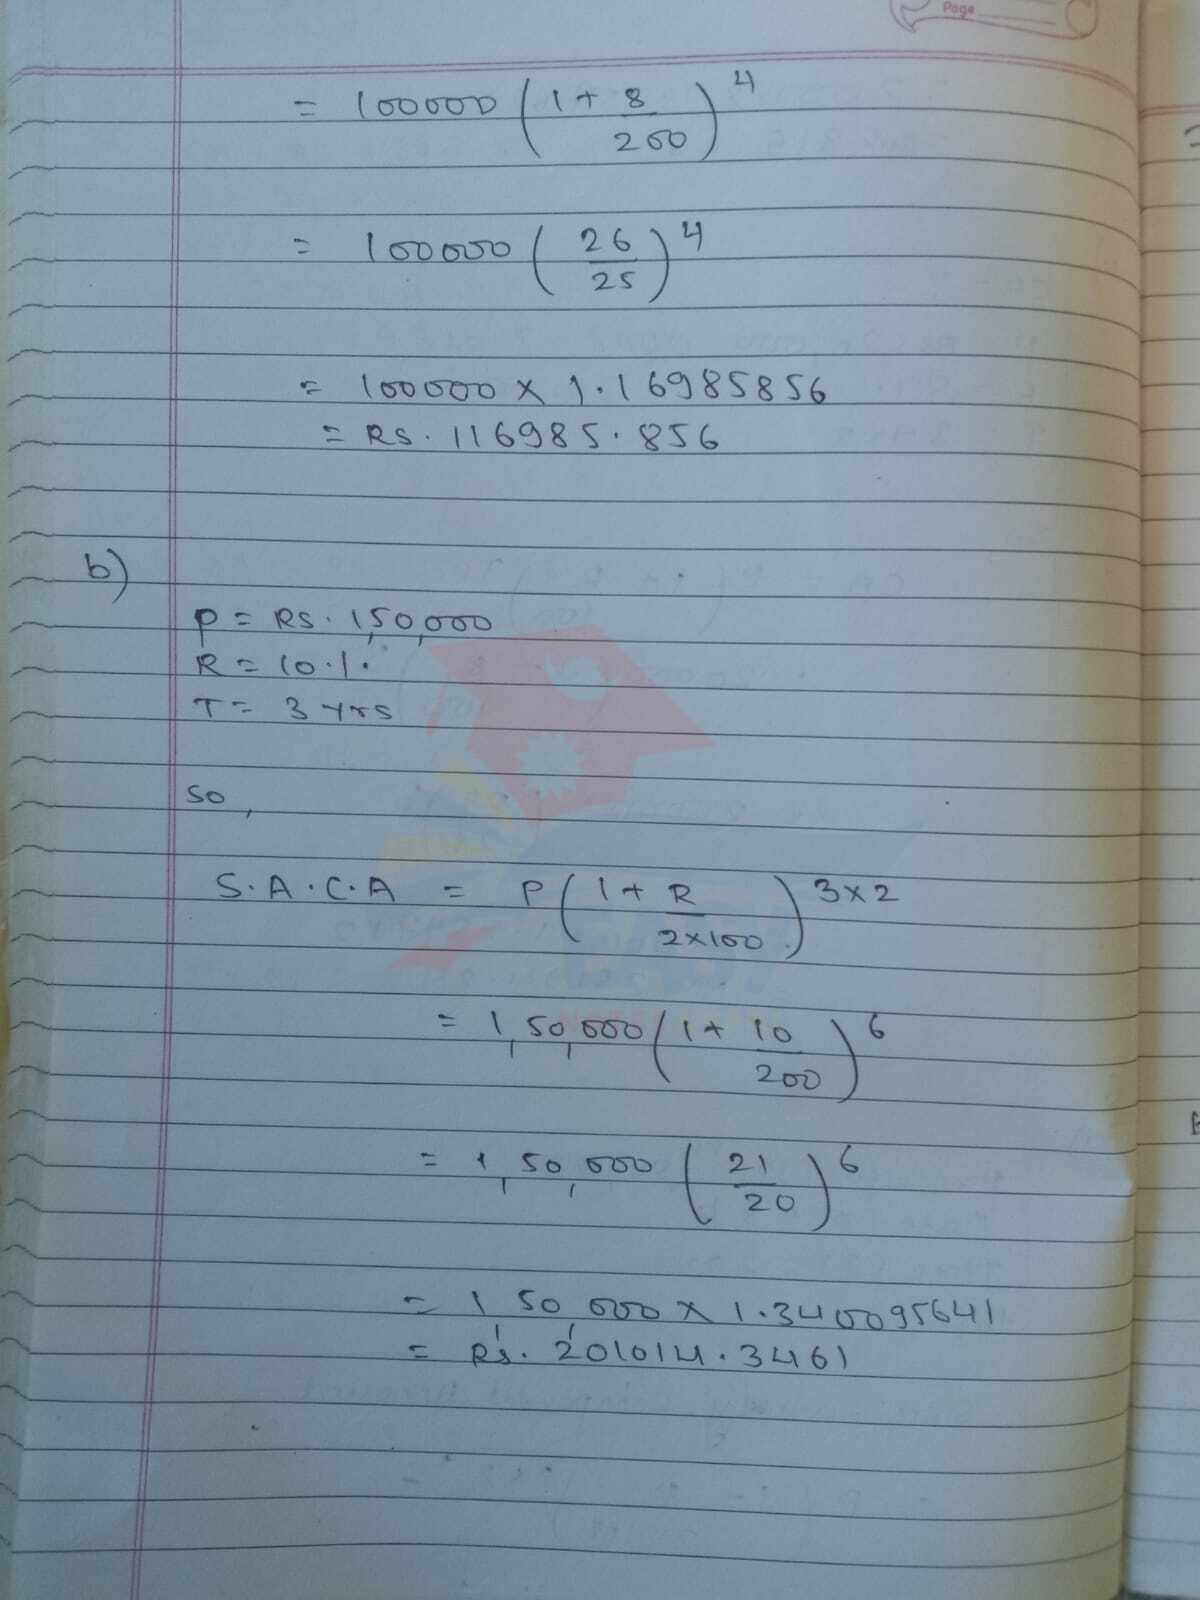 Page
= 100000 (1 + 8/200)^4
= 100000 (26/25)^4
= 100000 × 1.16985856
= RS. 116985.856
b)
P = RS. 1,50,000
R = 10.1.
T = 3 yrs
so,
S.A.C.A = P(1 + R/2×100)^3×2
= 1,50,000 (1 + 10/200)^6
= 1,50,000 (21/20)^6
= 1,50,000 × 1.340095641
= RS. 201014.3461
EASY